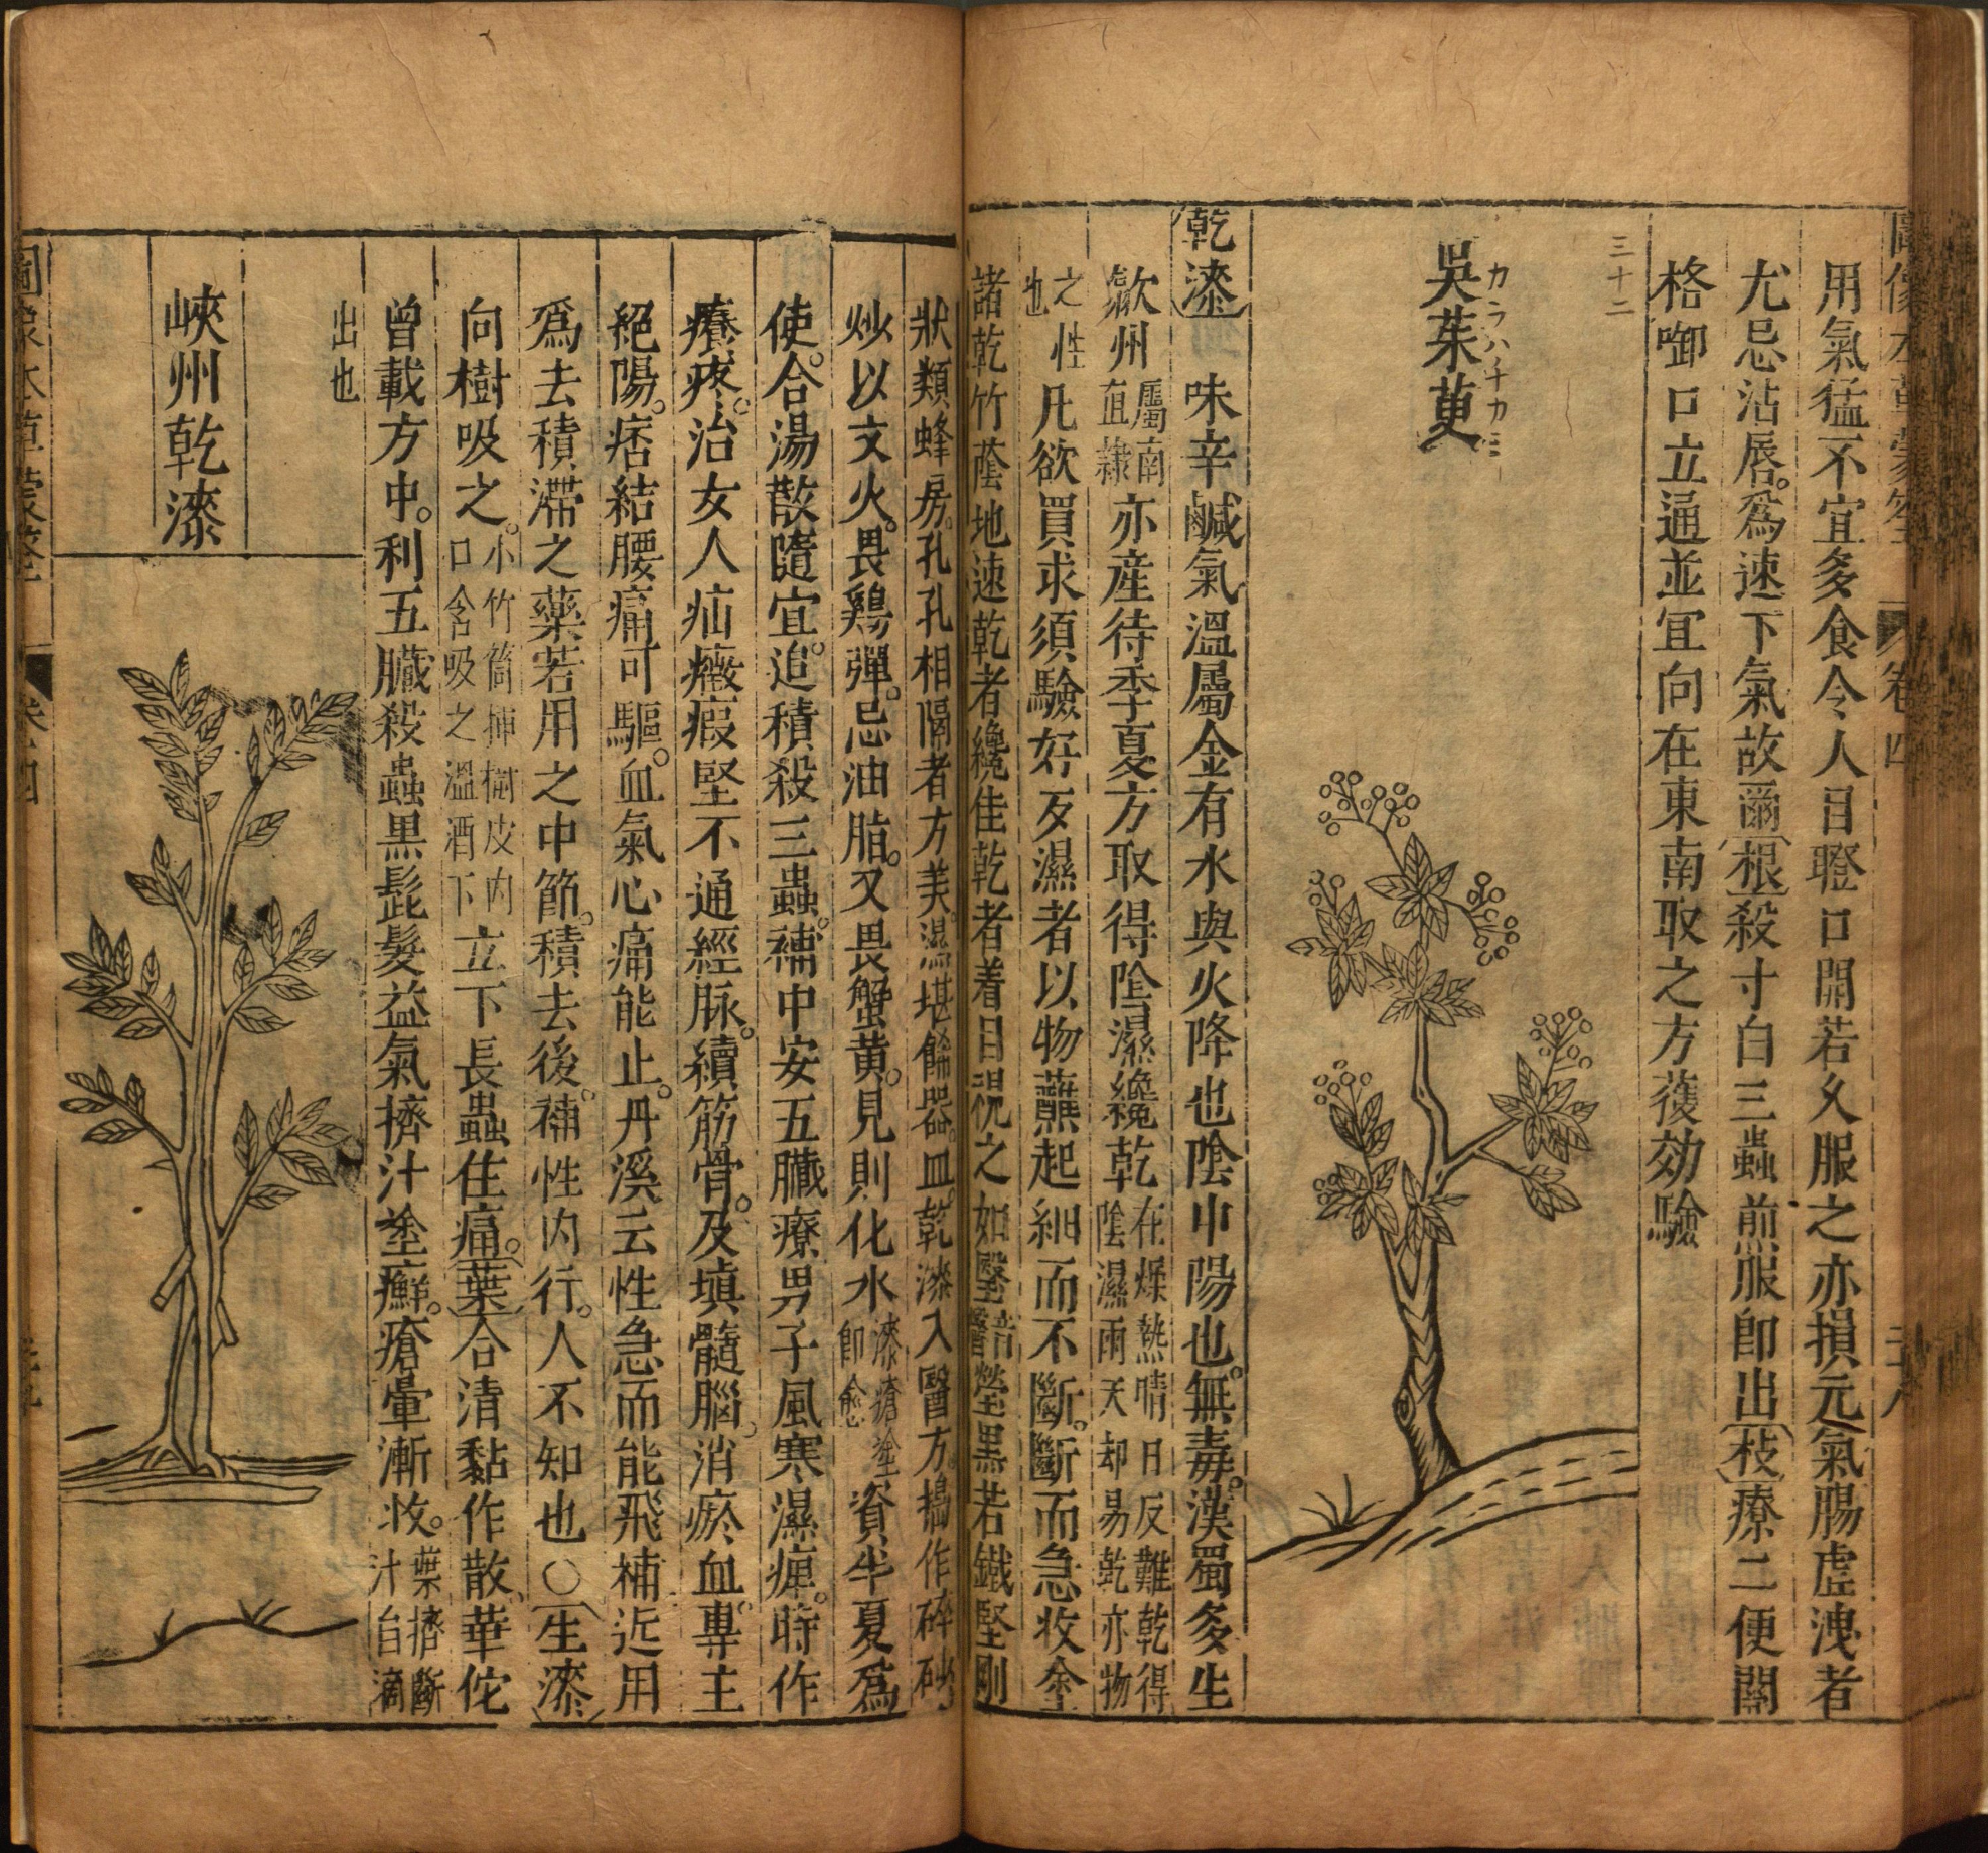 圖像本草蒙筌 卷四 三十八
用氣猛不宜多食令人目瞪口開若久服之亦損元氣腸虛洩者
尤忌沾唇。爲速下氣故爾根殺寸白三蟲煎服卽出枝療二便關
格啣口立通並宜向在東南取之方蒦効驗
三十二
吳茱萸
カラハチカミ
乾漆 味辛鹹氣溫屬金有水與火降也陰中陽也。無毒。漢蜀多生
歙州屬南直隷亦産待季夏方取得陰濕纔乾在燥熱晴日反難乾得陰濕雨天却易乾亦物
之性也 凡欲買求須驗好歹濕者以物蘸起細而不斷。斷而急收塗
諸乾竹蔭地速乾者纔佳乾者着目視之如瑿音醫瑩黑若鐵堅剛
狀類蜂房。孔孔相隔者方美。濕堪餙器皿。乾漆入醫方。搗作碎砂
炒以文火。畏鷄彈。忌油脂。又畏蟹黃。見則化水漆瘡塗卽愈資半夏爲
使。合湯散隨宜。追積殺三蟲。補中安五臟療男子風寒濕痺。時作
癢疼。治女人疝癥瘕堅不通經脉。續筋骨。及塡髓腦。消瘀血。專主
絕陽。痞結腰痛可驅。血氣心痛能止。丹溪云性急而能飛補近用
爲去積滯之藥若用之中節。積去後。補性内行。人不知也〇生漆
向樹吸之。小竹筒揷樹皮内口含吸之溫酒下立下長蟲住痛。葉合清黏作散華佗
曾載方中。利五臟殺蟲黒髭髮益氣擠汁塗癬。瘡暈漸收。葉擠斷汁自滴
出也
峽州乾漆
圖像本草蒙筌 卷四